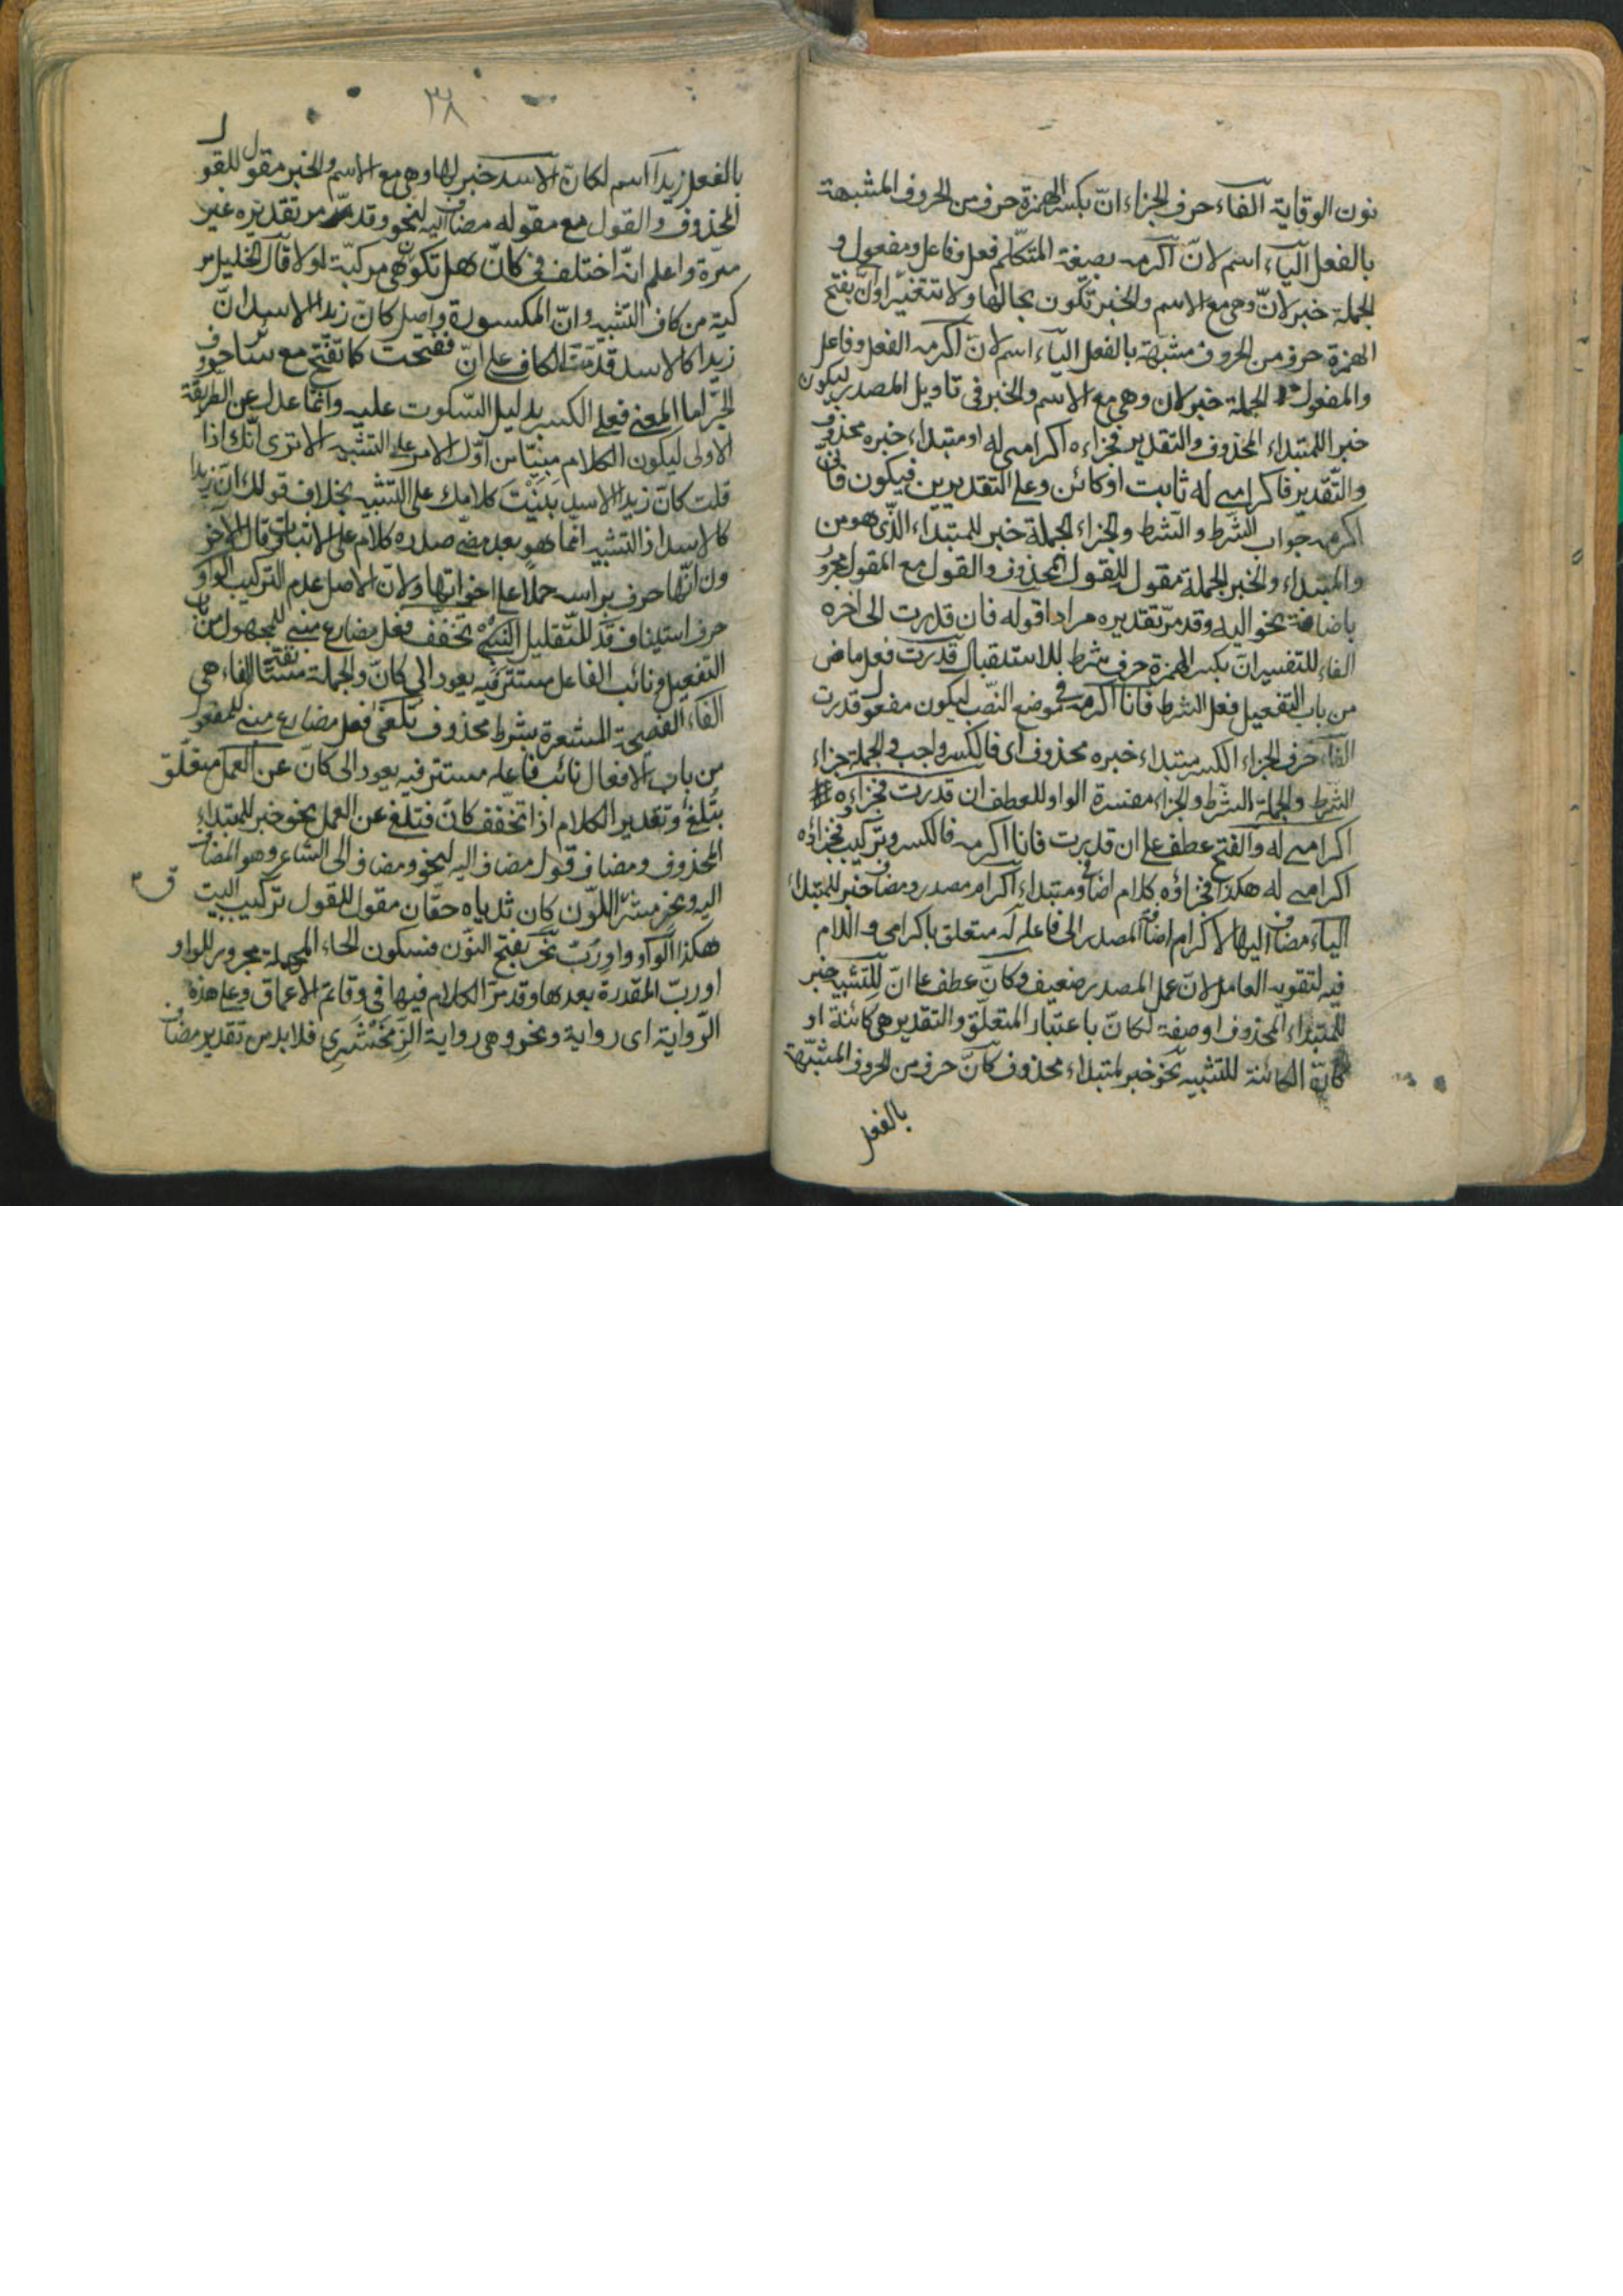 نون الوقاية الفاء حرف الجزاء انّ بكسر الهمزة حرف من الحروف المشبهة
بالفعل الياء اسم لانّ اكرمه بصيغة المتكلم فعل وفاعل ومفعول و
الجملة خبر لانّ وهى مع الاسم والخبر تكون بحالها ولا تتغير او انّ بفتح
الهمزة حرف من الحروف مشبهة بالفعل الياء اسم لانّ اكرمه الفعل وفاعل
والمفعول الجملة خبر لان وهى مع الاسم والخبر فى تأويل المصدر ليكون
خبر اللمبتداء المحذوف والتقدير فجزاءه اكرامى له او مبتداء خبره محذوف
والتقدير فاكرامى له ثابت او كائن وعلى التقديرين فيكون فانّى
اكرمه جواب الشرط والشرط والجزاء الجملة خبر للمبتداء الذى هو من
والمبتداء والخبر الجملة مقول للقول المحذوف والقول مع المقول مجرور
باضافة نحو اليه وقد مرّ تقديره مرارا قوله فان قدرت الى آخره
الفاء للتفسير ان بكسر الهمزة حرف شرط للاستقبال قدرت فعل ماض
من باب التفعيل فعل الشرط فانا اكرمه فى موضع النصب ليكون مفعول قدرت
الفاء حرف الجزاء الكسر مبتداء خبره محذوف اى فالكسر واجب والجملة جزاء
الشرط والجملة الشرط والجزاء مفسرة الواو للعطف ان قدرت فجزاءه
اكرامى له والفتح عطف على ان قدرت فانا اكرمه فالكسر وتركيب فجزاؤه
اكرامى له هكذا فجزاؤه كلام اضافى ومبتداء اكرام مصدر ومضاف خبر للمبتداء
الياء مضاف اليها لاكرام اضافة المصدر الى فاعله له متعلق باكرامى واللام
فيه لتقوية العامل لانّ عمل المصدر ضعيف وكانّ عطف على انّ للتشبيه خبر
للمبتداء المحذوف او صفة لكانّ باعتبار المتعلق والتقدير هى كائنة او
كانّ الكائنة للتشبيه نحو خبر لمبتداء محذوف كانّ حرف من الحروف المشبهة
بالفعل
٣٨
بالفعل زيدا اسم لكانّ الاسد خبر لها وهى مع الاسم والخبر مقول للقول
المحذوف والقول مع مقوله مضاف اليه لنحو وقد مرّ تقديره غير
مرّة واعلم انّه اختلف فى كانّ هل تكون هى مركبة او لا قال الخليل مر
كبة من كاف التشبيه وانّ المكسورة واصل كانّ زيدا الاسد انّ
زيدا كالاسد قدمت الكاف على انّ ففتحت كما تفتح مع سائر حروف
الجرّ اما المعنى فعلى الكسر بدليل السكوت عليه وانما عدل عن الطريقة
الاولى ليكون الكلام مبنيّا من اوّل الامر على التشبيه الا ترى انّك اذا
قلت كانّ زيدا الاسد بنيت كلامك على التشبيه بخلاف قولك انّ زيدا
كالاسد اذ التشبيه انما هو بعد مضى صدره كلام على الاثبات وقال الآخر
ون انّها حرف براسه حملا على اخواتها ولانّ الاصل عدم التركيب الواو
حرف استيناف قد للتقليل تخفف فعل مضارع مبنى للمجهول من باب
التفعيل ونائب الفاعل مستتر فيه يعود الى كانّ والجملة مستانفة الفاء هى
الفاء الفصيحة المشعرة بشرط محذوف تلغى فعل مضارع مبنى للمفعول
من باب الافعال نائب فاعله مستتر فيه يعود الى كانّ عن العمل متعلق
بتلغى وتقدير الكلام اذا تخفف كانّ فتلغى عن العمل نحو خبر للمبتداء
المحذوف ومضاف قول مضاف اليه لنحو ومضاف الى الشاعر وهو المضاف
اليه ونحر مشرّ اللون كان ثدياه حقّان مقول للقول تركيب البيت
هكذا الواو واو ربّ نحر بفتح النون فسكون الحاء المهملة مجرور للواو
او ربّ المقدرة بعدها وقد مرّ الكلام فيها فى وقاتم الاعماق وعلى هذه
الرّواية اى رواية ونحر وهى رواية الزمخشرى فلا بد من تقدير مضاف